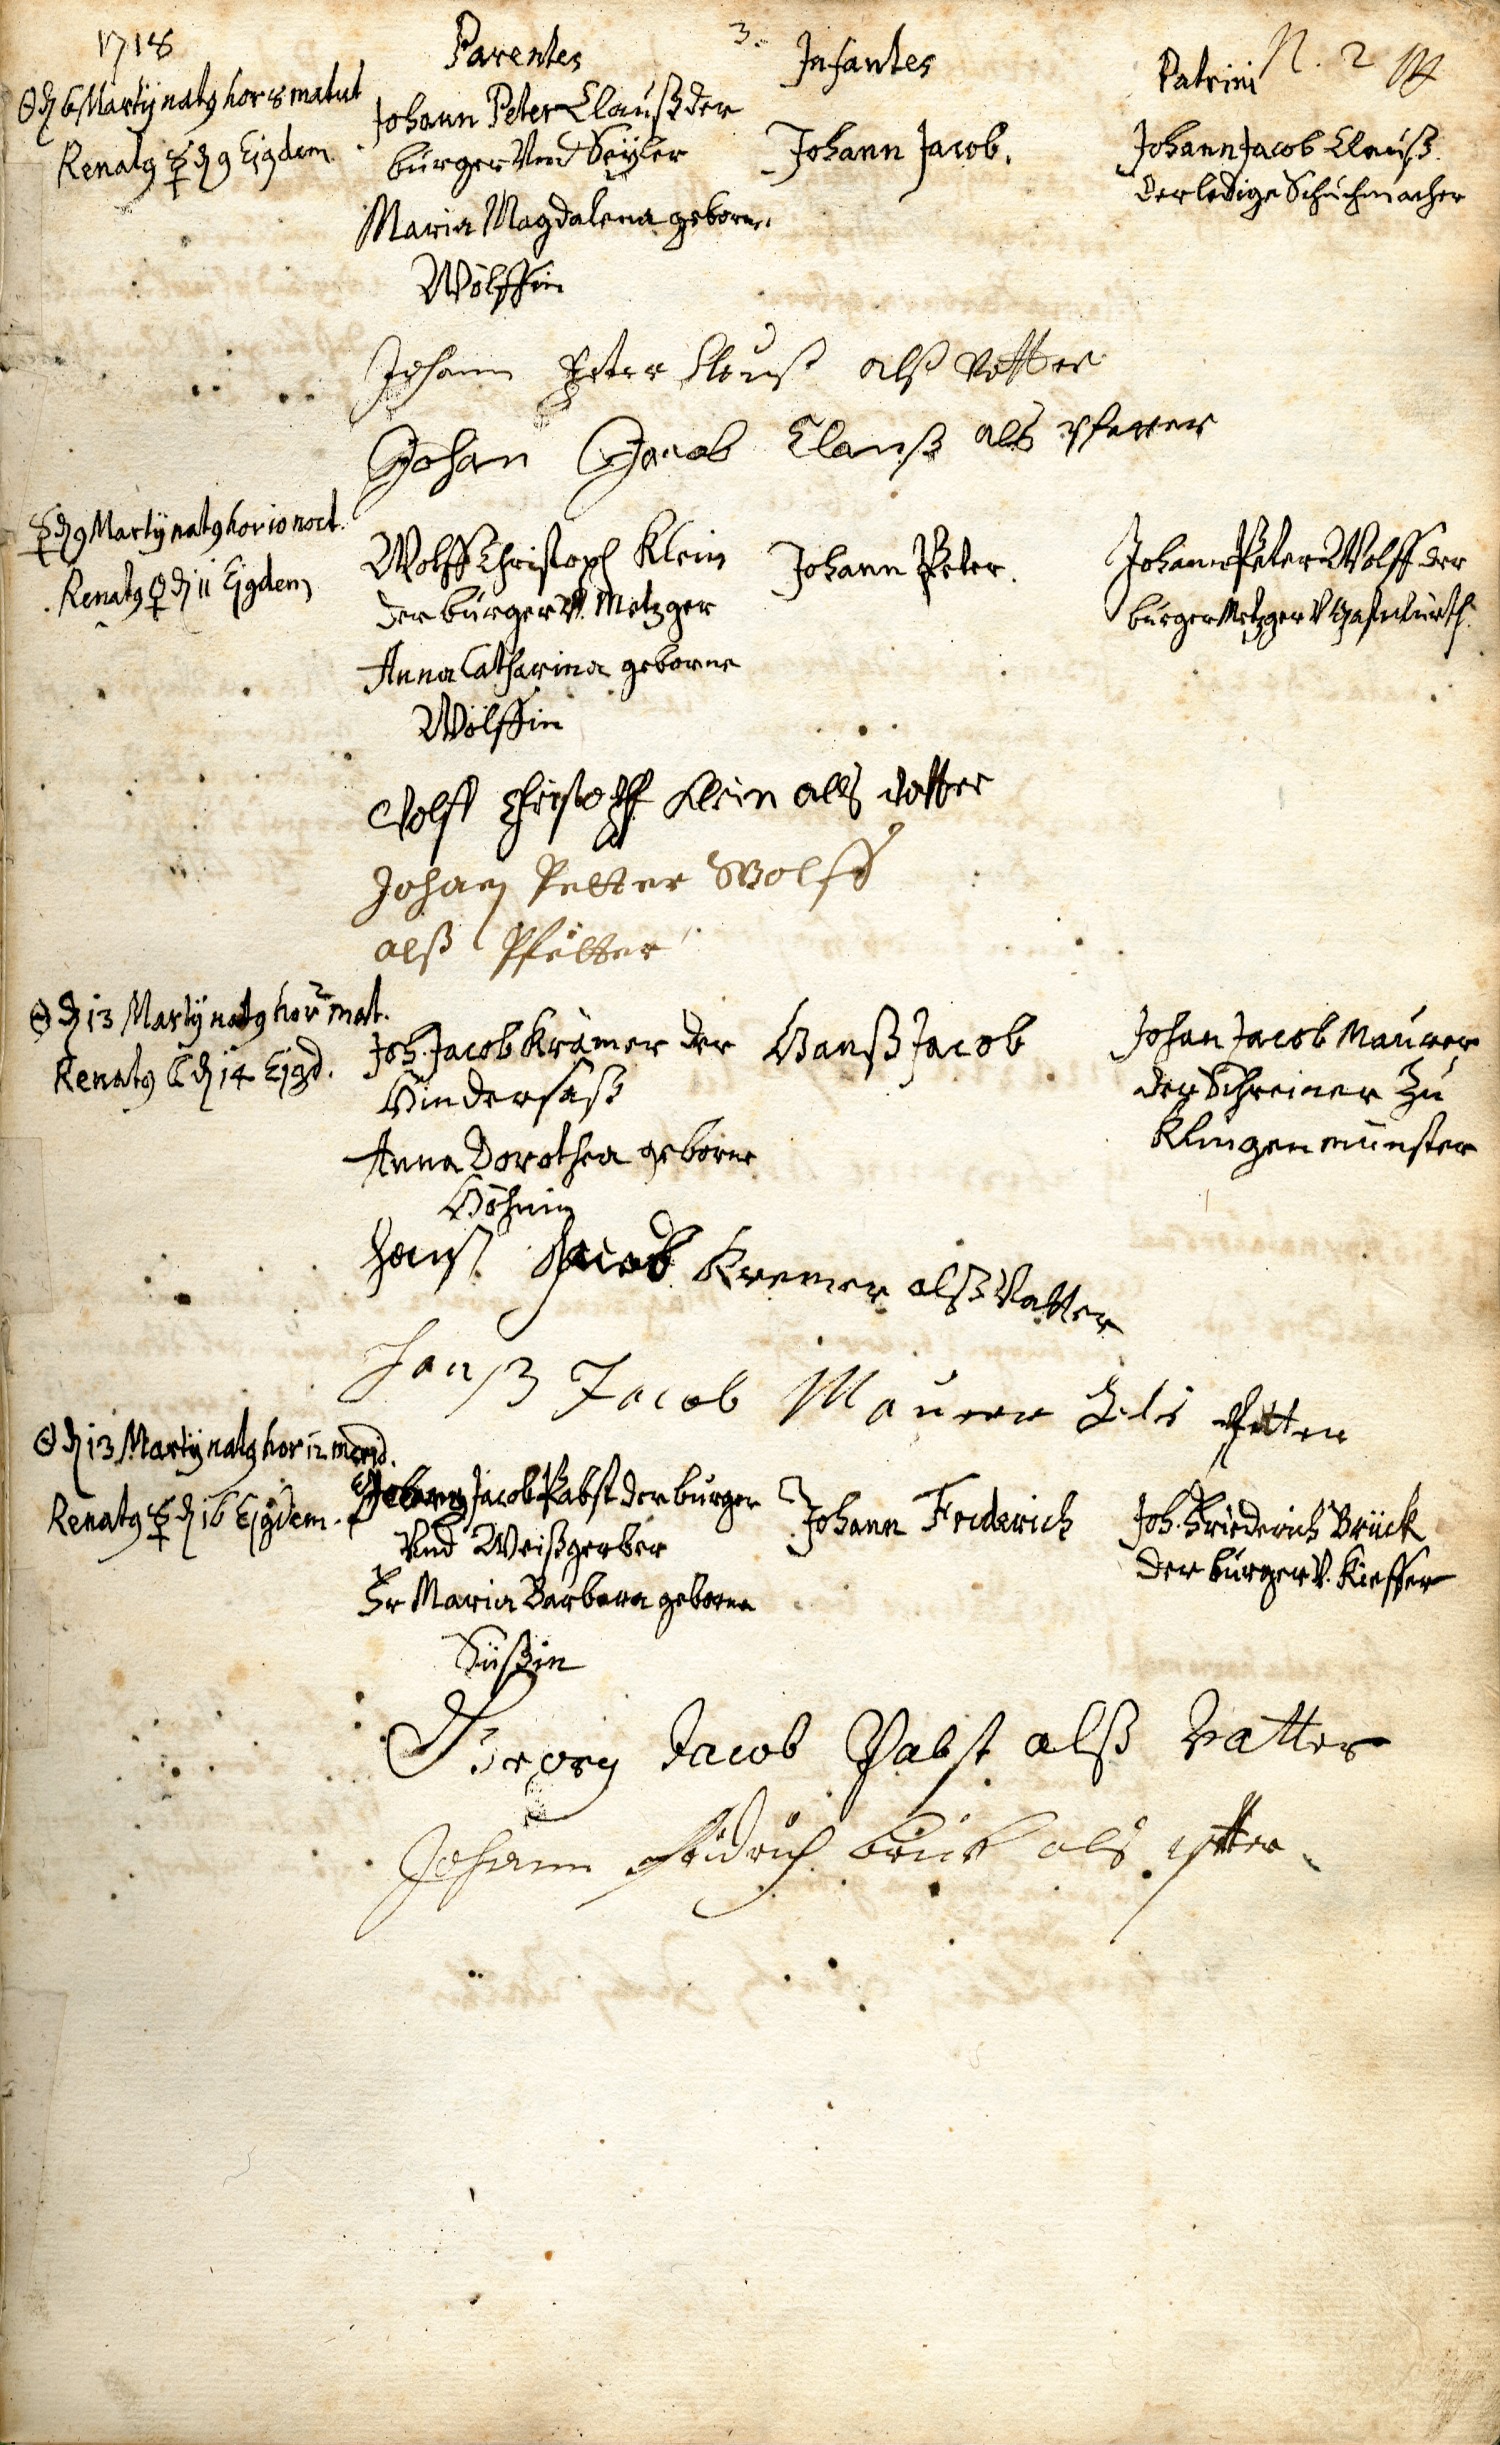 1718
Parentes
3.
Infantes
Patrini
N. 2
☉ d 6 Martÿ nat9 hor 8 matut
Renat9 ☿ d 9 Ejgdem.
Johann Peter Clauß der
bürger Vnd Seÿler
Maria Magdalena geborne
Wölffin
Johann Jacob.
Johann Jacob Clauß.
der ledige Schuhmacher
Johann Peter Clauß alß Vatter
Johan Jacob Clauß als
♀ d 9 Martÿ nat9 hor 10 noct.
Renat9 d 11 Ejgdem
Wolff Christoph Klein
der bürger V. Metzger
Anna Catharina geborne
Wölffin
Johann Peter.
Johann Peter Wolff der
bürger Metzger V Gastwürth.
Wolff Christoph Klein alls Vatter
Johan Petter Wolff
alß Pfetter
☉ d 13 Martÿ nat9 hor 2 mat.
Renat9 ☾ d 14 Ejgd.
Joh. Jacob Krämer der
Hindersaß
Anna Dorothea geborne
Höhnin
Hanß Jacob
Johan Jacob Maurer
der Schreiner Zu
Klingenmünster
Hanß Jacob Kremer alß Vatter
Hanß Jacob Maurer Als Petter
☉ d 13 Martÿ nat9 hor 12 merid.
Renat9 ☿ d 16 Ejgdem.
Georg Jacob Pabst der bürger
Vnd Weißgerber
Fr Maria Barbara geborne
Süßin
Johann Friderich
Joh. Friederich Brück
der bürger V. Kieffer
Georg Jacob Pabst alß Vatter
Johann fridrich brück als pfetter